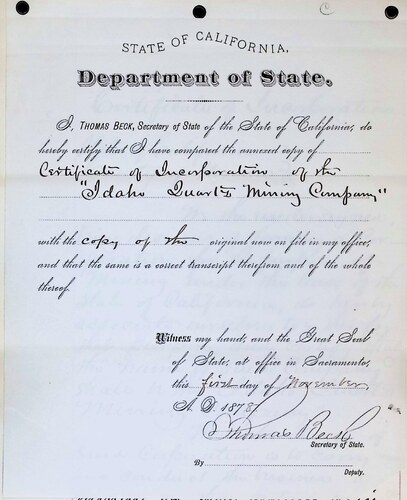 C
STATE OF CALIFORNIA,
Department of State.
I, THOMAS BECK, Secretary of State of the State of California, do
hereby certify that I have compared the annexed copy of
Certificate of Incorporation of the
"Idaho Quartz Mining Company"
with the copy of the original now on file in my office,
and that the same is a correct transcript therefrom and of the whole
thereof.
Witness my hand, and the Great Seal
of State, at office in Sacramento,
this first day of November
A. D. 1878.
Thomas Beck
Secretary of State.
By
Deputy.